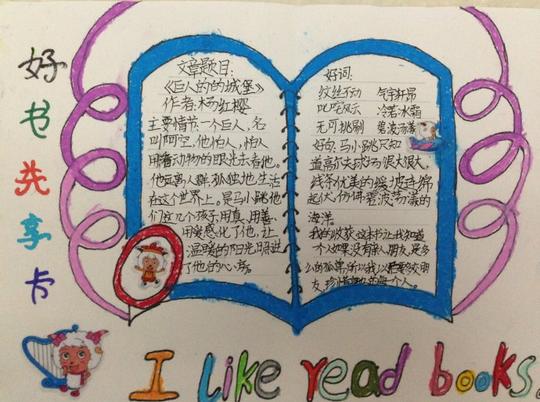 好书先享卡
文章题目:
《巨人的的城堡》
作者:杨红樱
主要情节:一个巨人,名
叫阿空,他怕人,怕人
用看动物的眼光去看他。
他远离人群,孤独地生活
在这个世界上。是马小跳他
们这几个孩子用真、用善、
用爱感化了他,让
温暖的阳光照进
了他的心房。
好词:
纹丝不动 气宇轩昂
叱咤风云 冷若冰霜
无可挑剔 碧波荡漾
好句:马小跳只知
道高尔夫球场很大很大,
线条优美的缓坡连绵
起伏,仿佛碧波荡漾的
海洋
我的收获:这本书让我知道
一个人如果没有亲人、朋友,是多
么的孤单,所以我以后要多交朋
友,珍惜身边的每一个人。
I like read books.